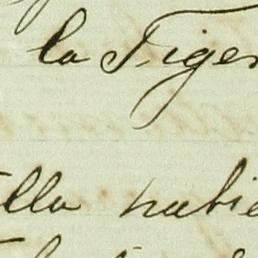 la Tiger
lla habie